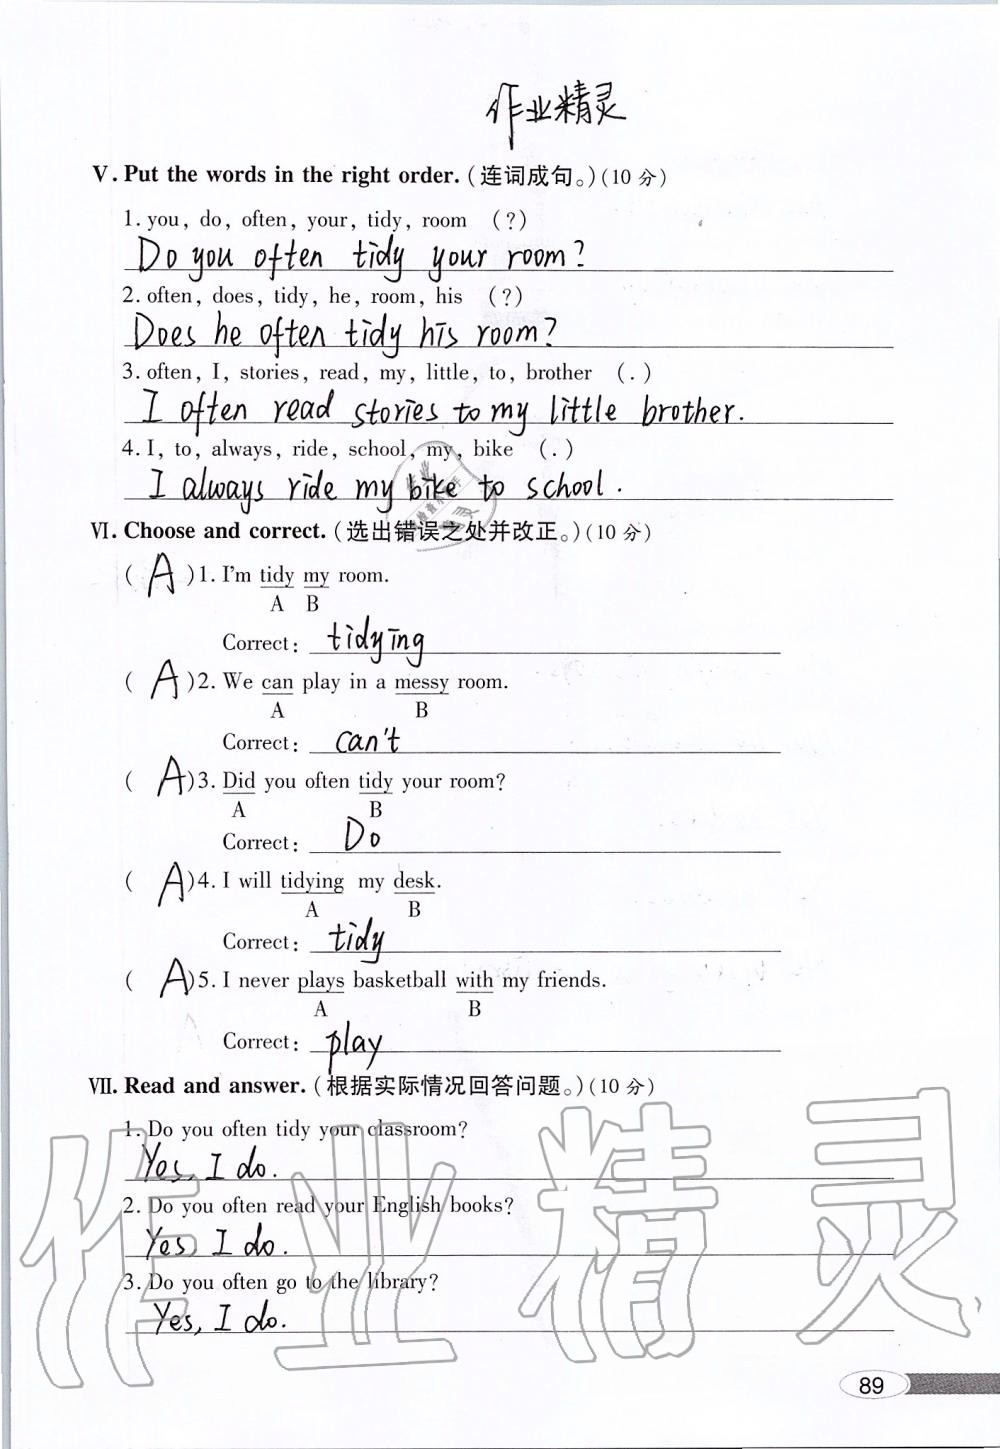 作业精灵
Ⅴ. Put the words in the right order. (连词成句。)(10 分)
1. you, do, often, your, tidy, room (?)
Do you often tidy your room?
2. often, does, tidy, he, room, his (?)
Does he often tidy his room?
3. often, I, stories, read, my, little, to, brother (.)
I often read stories to my little brother.
4. I, to, always, ride, school, my, bike (.)
I always ride my bike to school.
Ⅵ. Choose and correct. (选出错误之处并改正。)(10 分)
( A )1. I'm tidy my room.
A B
Correct: tidying
( A )2. We can play in a messy room.
A B
Correct: can't
( A )3. Did you often tidy your room?
A B
Correct: Do
( A )4. I will tidying my desk.
A B
Correct: tidy
( A )5. I never plays basketball with my friends.
A B
Correct: play
Ⅶ. Read and answer. (根据实际情况回答问题。)(10 分)
1. Do you often tidy your classroom?
Yes, I do.
2. Do you often read your English books?
Yes, I do.
3. Do you often go to the library?
Yes, I do.
作业精灵
89